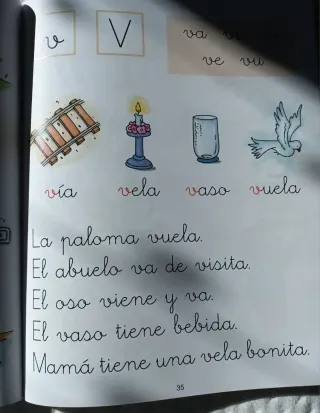 v V va
ve vu
vía vela vaso vuela
La paloma vuela.
El abuelo va de visita.
El oso viene y va.
El vaso tiene bebida.
Mamá tiene una vela bonita.
35